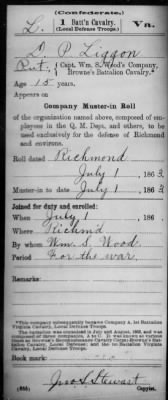 (Confederate.)
L. 1 Batt'n Cavalry, Va.
(Local Defense Troops.)
L. P. Liggon
Pvt., Capt. Wm. S. Wood's Company,
Browne's Battalion Cavalry.*
Age 15 years.
Appears on
Company Muster-in Roll
of the organization named above, composed of employees in the Q. M. Dept., and others, to be used exclusively for the defense of Richmond and environs.
Roll dated Richmond
July 1, 1863
Muster-in to date July 1, 1863
Joined for duty and enrolled:
When July 1, 186
Where Richmd
By whom Wm. S. Wood
Period For the war.
Remarks:
*This company subsequently became Company A, 1st Battalion Virginia Cavalry, Local Defense Troops.
Book mark:
Jno. S. Stewart
Copyist.